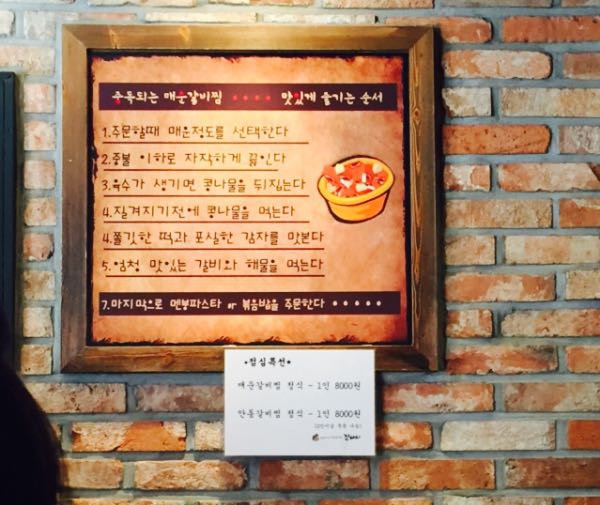 중독되는 매운갈비찜 •••• 맛있게 즐기는 순서
1.주문할때 매운정도를 선택한다
2.중불 이하로 자작하게 끓인다
3.육수가 생기면 콩나물을 뒤집는다
4.질겨지기전에 콩나물을 먹는다
4.쫄깃한 떡과 포실한 감자를 맛본다
5.엄청 맛있는 갈비와 해물을 먹는다
7.마지막으로 멘붕파스타 or 볶음밥을 주문한다 •••••
*점심특선*
매운갈비찜 정식 - 1인 8000원
안동갈비찜 정식 - 1인 8000원